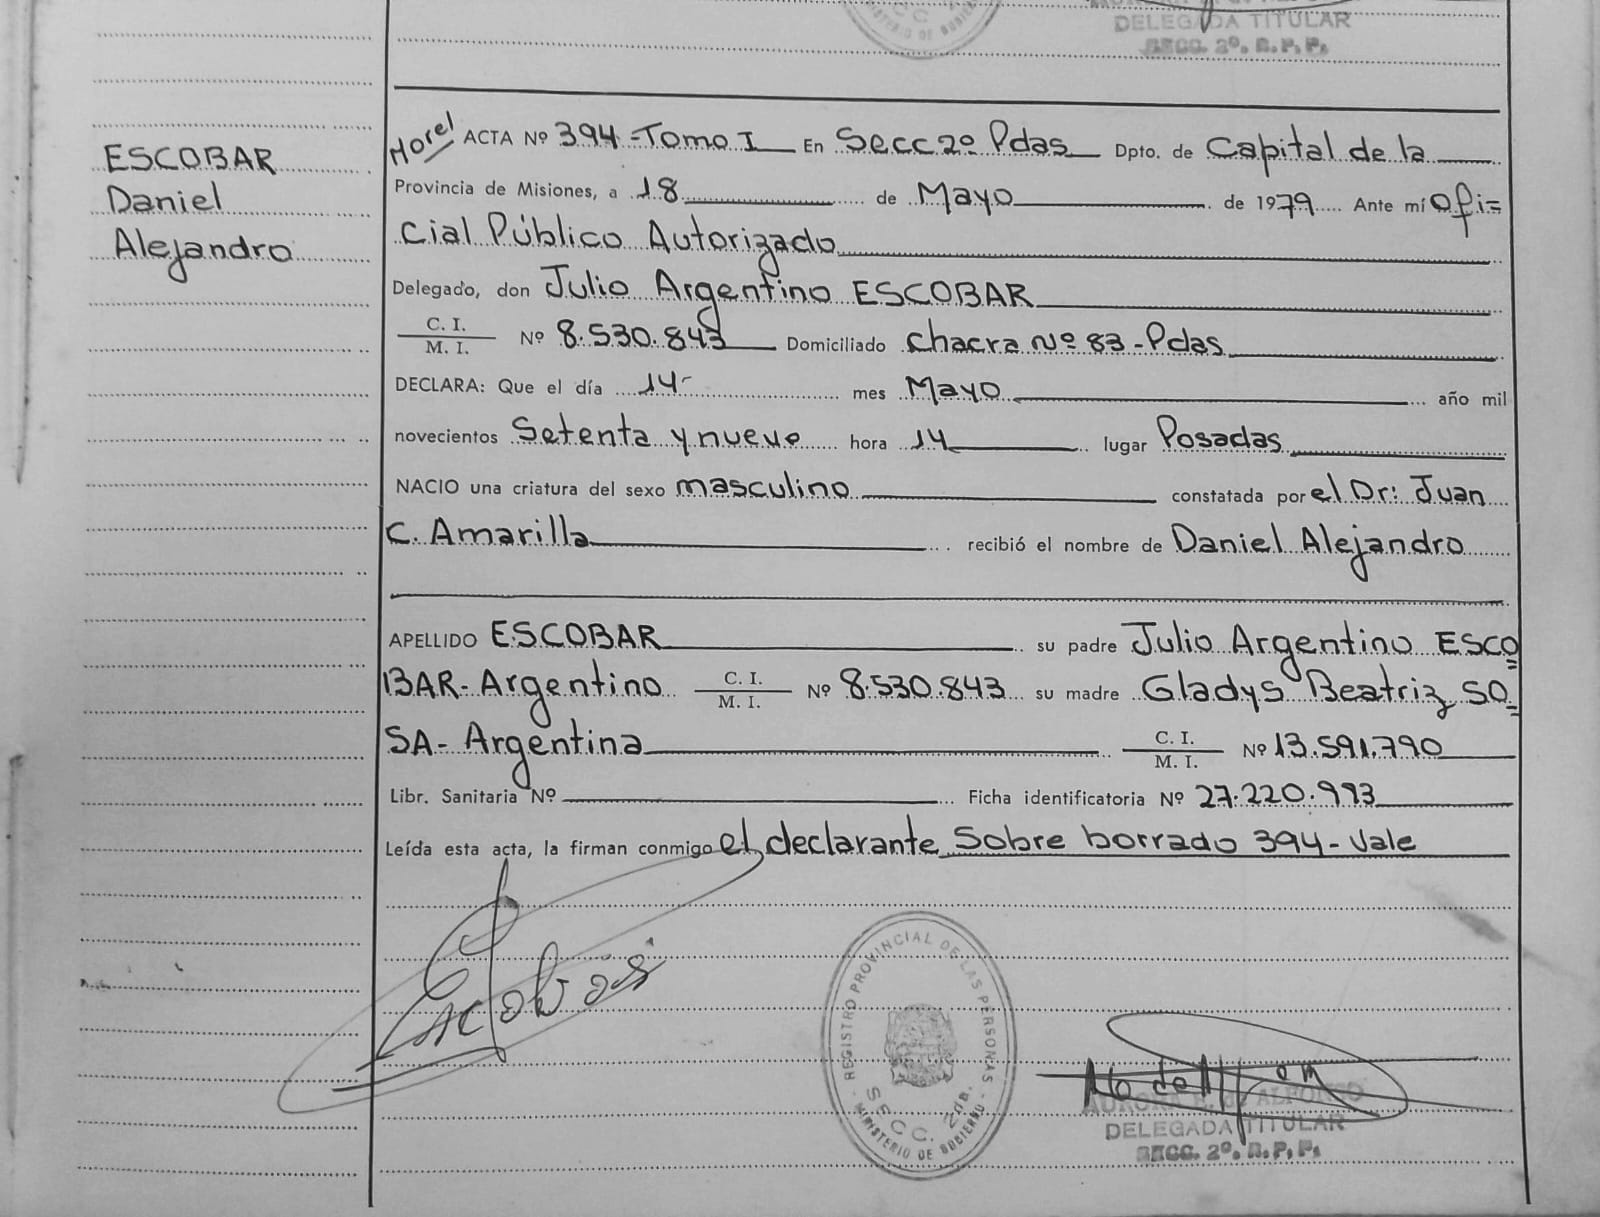 MINISTERIO DE GOBIERNO
DELEGADA TITULAR
SECC. 2º. R. P. P.
ESCOBAR
Daniel
Alejandro
Morel ACTA Nº 394-Tomo I En Secc 2º Pdas Dpto. de Capital de la
Provincia de Misiones, a 18 de Mayo de 1979 Ante mí Ofi=
cial Público Autorizado
Delegado, don Julio Argentino ESCOBAR
C. I. / M. I. Nº 8.530.843 Domiciliado Chacra Nº 83-Pdas
DECLARA: Que el día 14- mes Mayo año mil
novecientos Setenta y nueve hora 14 lugar Posadas
NACIO una criatura del sexo masculino constatada por el Dr: Juan
C. Amarilla recibió el nombre de Daniel Alejandro
APELLIDO ESCOBAR su padre Julio Argentino ESCO=
BAR-Argentino C. I. / M. I. Nº 8.530.843 su madre Gladys Beatriz SO=
SA-Argentina C. I. / M. I. Nº 13.591.790
Libr. Sanitaria Nº Ficha identificatoria Nº 27.220.993
Leída esta acta, la firman conmigo el declarante Sobre borrado 394-Vale
Escobar
REGISTRO PROVINCIAL DE LAS PERSONAS
SECC. 2da.
MINISTERIO DE GOBIERNO
AURORA de ALFONSO
DELEGADA TITULAR
SECC. 2º. R. P. P.